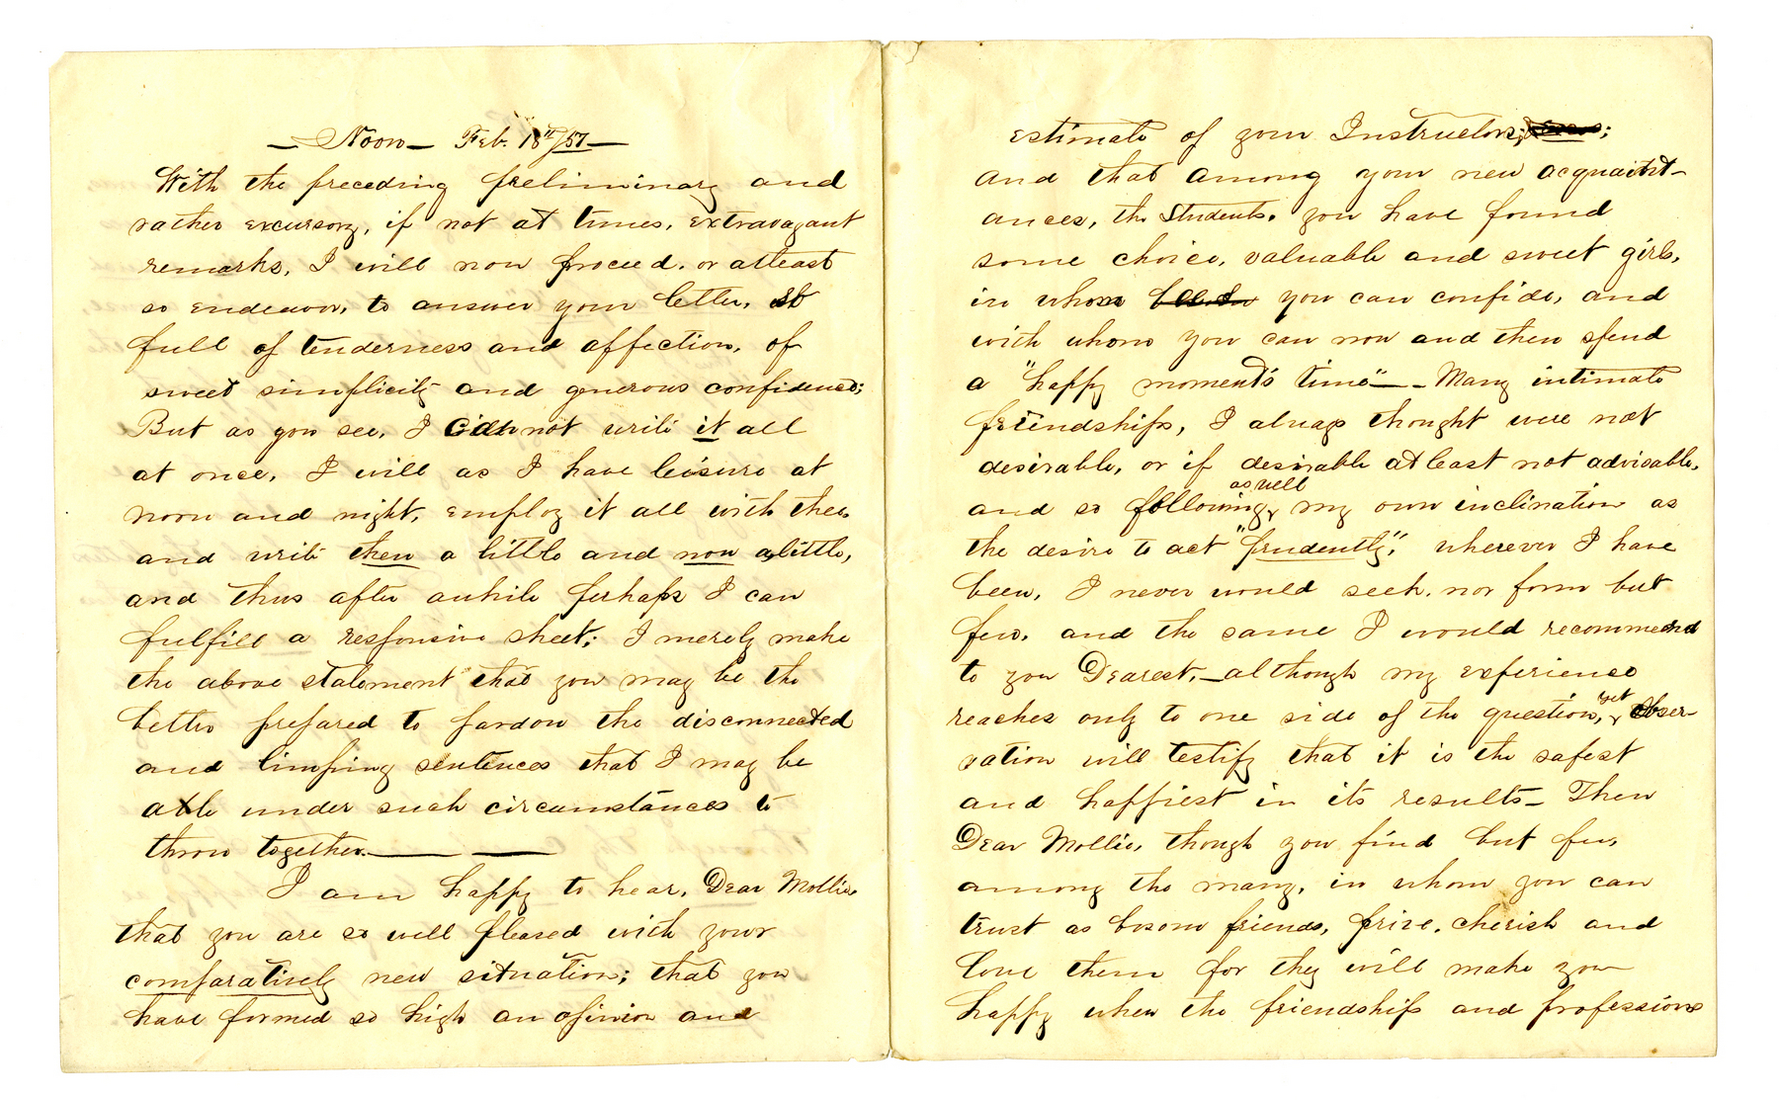 — Noon — Feb. 18"/57 —
With the preceding preliminary and
rather excursory, if not at times, extravagant
remarks, I will now proceed, or atleast
so endeavor, to answer your letter, so
full of tenderness and affection, of
sweet simplicity and generous confidence;
But as you see, I can not write it all
at once, I will as I have leisure at
noon and night, employ it all with thee
and write then a little and now a little,
and thus after awhile perhaps I can
fulfill a responsive sheet; I merely make
the above statement that you may be the
better prepared to pardon the disconnected
and limping sentences that I may be
able under such circumstances to
throw together. — —
I am happy to hear, Dear Mollie,
that you are so well pleased with your
comparatively new situation; that you
have formed so high an opinion and
estimate of your Instructors;
and that among your new acquaint-
ances, the Students, you have found
some choice, valuable and sweet girls,
in whom you can confide, and
with whom you can now and then spend
a "happy moment's time" — Many intimate
friendships, I always thought were not
desirable, or if desirable at least not advisable,
and so following, as well my own inclination as
the desire to act "prudently," wherever I have
been, I never would seek, nor form but
few, and the same I would recommend
to you Dearest, — although my experience
reaches only to one side of the question, yet obser-
vation will testify that it is the safest
and happiest in its results — Then
Dear Mollie, though you find but few,
among the many, in whom you can
trust as bosom friends, prize, cherish and
love them for they will make you
happy when the friendships and professions